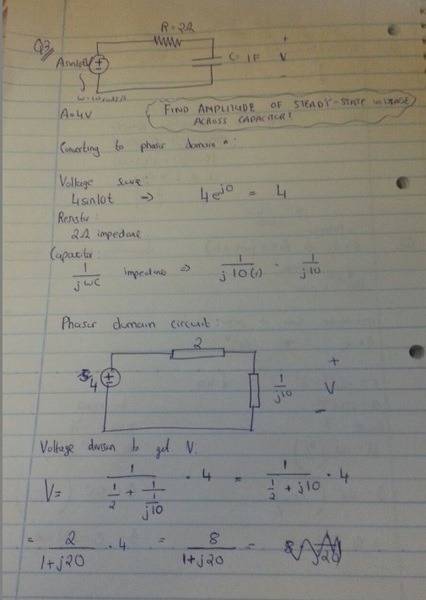 Q3
R = 2Ω
Asinlot
C = 1F
+
V
-
A=4V
FIND AMPLITUDE OF STEADY-STATE VOLTAGE
ACROSS CAPACITOR!
Converting to phasor domain:
Voltage source:
4sin10t => 4e^j0 = 4
Resistor:
2Ω impedance
Capacitor:
1/jωC impedance => 1/j10(1) = 1/j10
Phasor domain circuit:
2
4
1/j10
+
V
-
Voltage division to get V:
V = 1/(1/2 + 1/(1/j10)) · 4 = 1/(1/2 + j10) · 4
= 2/(1+j20) · 4 = 8/(1+j20) =